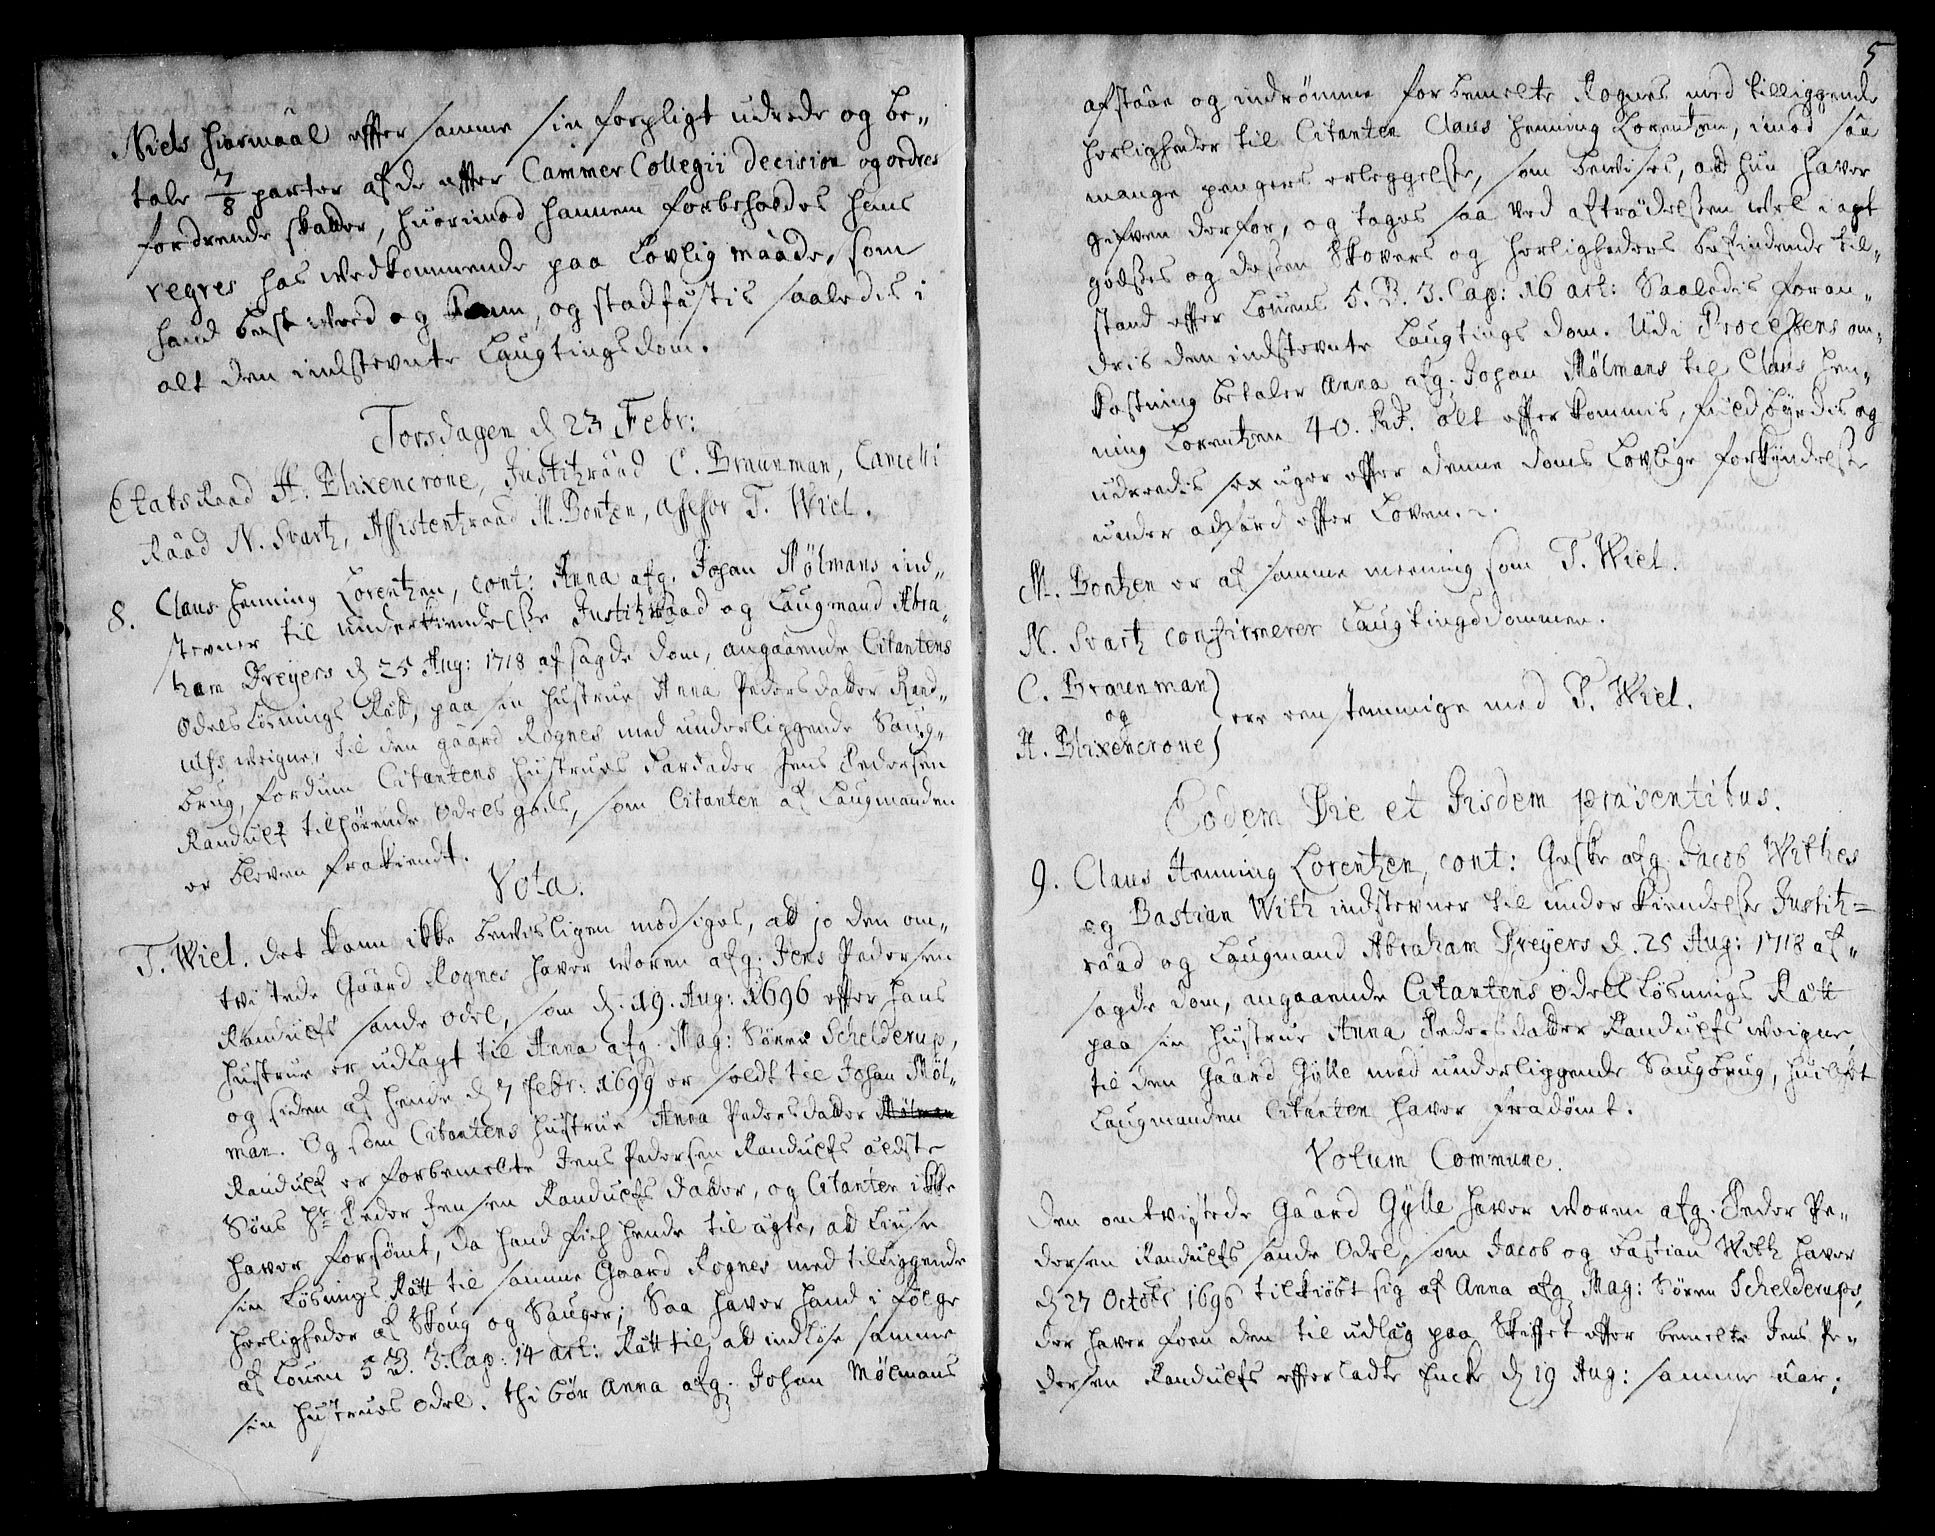 Niels hiermaal effter samme sin forpligt udrede og be-
tale 7/8 parter af de effter Cammer Collegii Decision og ordres
fordrende skatter, huorimod hannem forbeholdes hans
regres hos wedkommende paa Lovlig maade, som
hand best weed og kann, og stadfästis saaledis i
alt den indstevnte Laugtingsdom.
Torsdagen d 23 Febr:
Etats Raad H. Blixencrone, Justitzraad C. Braunman, Cancelli
Raad N. Svartz, Assistentzraad M. Bontzen, assessor T. Wiel.
8. Claus Henning Lorentzen, cont: Anna afg. Johan Mølmans ind-
stevner til underkiendelsse Justitzraad og Laugmand Abra-
ham Dreyers d 25 Aug: 1718 afsagde dom, angaaende Citantens
Odels Løsnings Rätt, paa sin hustrue Anna Pedersdatter Rand-
ulfs weigne, til den gaard Rognes med underliggende Saug-
brug, fordum Citantens hustrues Farfader Jens Pedersen
Randulf tilhørende Odels gods, som Citanten af Laugmanden
er bleven frakiendt.
Vota.
T. Wiel. Det kann ikke bevisligen modsiges, at jo den om-
twistede Gaard Rognes haver woren afg. Jens Pedersen
Randulfs sande odel, som d. 19. Aug: 1696 effter hans
hustrue er udlagt til Anna afg. Mag: Søren Schelderup,
og siden af hende d 7 Febr: 1699 er soldt til Johan Møl-
man. Og som Citantens hustrue Anna Pedersdatter Mølman
Randulf er forbemelte Jens Pedersen Randulfs ældste
Søns Hr Peder Jensen Randulfs datter, og Citanten ikke
haver forsømt, da hand fich hende til ägte, at liuse
sin Løsnings Rätt til samme Gaard Rognes med tilliggende
herligheder af Skoug og Sauger; Saa haver hand i følge
af Louen 5 B. 3. Cap: 14 art: Rätt til, at indløse samme
sin hustrues odel. thi bör Anna afg. Johan Mølmans
5
afstaae og indrømme forbemelte Rognes med tilliggende
herligheder til Citanten Claus Henning Lorentzen, imod saa
mange pengers erleggelse, som bewises, at hun haver
gifven derfor, og tages saa ved aftrædelssen wel i agt
godsses og dessen Skovers og herligheders befindende til-
stand effter Louens 5. B. 3. Cap: 16 art: Saaledis foran-
dris den indstevnte Laugtings dom. Udi Processens om-
kostning betaler Anna afg. Johan Mølmans til Claus Hen-
ning Lorentzen 40. Rd. alt efterkommis, fuldbyrdis og
udredis sex uger effter denne doms Lovlige forkyndelsse
under adfärd effter Loven.
M. Bontzen er af samme meening som T. Wiel.
N. Svartz confirmerer Laugtingsdommen.
C. Braunman
og
H. Blixencrone
ere eenstemmige med T. Wiel.
Eodem Die et Iisdem præsentibus.
9. Claus Henning Lorentzen, cont: Geske afg. Jacob Withes
og Bastian With indstevner til underkiendelsse Justitz-
raad og Laugmand Abraham Dreyers d. 25 Aug: 1718 af-
sagde dom, angaaende Citantens odels Løsnings Rätt
paa sin hustrue Anna Pedersdatter Randulfs weigne,
til den Gaard Gylle med underliggende Saugbrug, huilket
Laugmanden Citanten haver fradømt.
Votum Commune.
Den omtvistede Gaard Gylle haver woren afg. Peder Pe-
dersen Randulfs sande Odel, som Jacob og Bastian With haver
d 27 Octobr 1696 tilkiøbt sig af Anna afg. Mag: Søren Schelderups,
der haver foen den til udlæg paa Skifftet effter bemelte Jens Pe-
dersen Randulfs effterladte Encke d 19 Aug: samme aar;